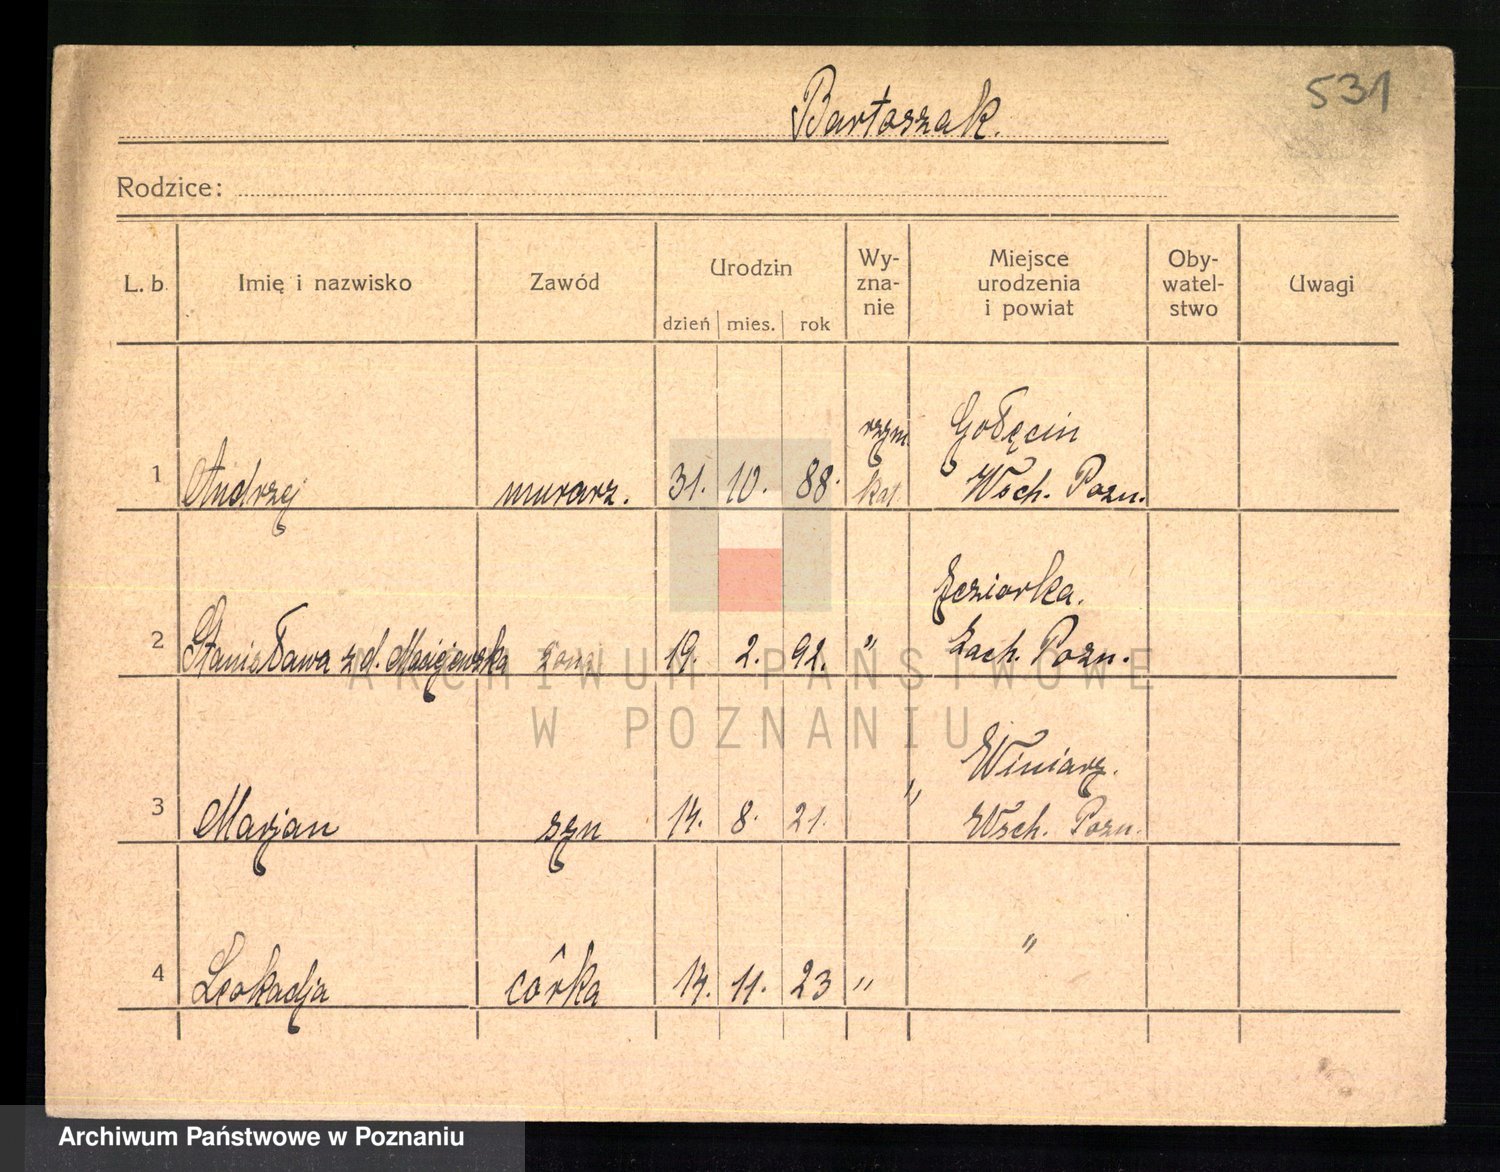 531
Bartoszak.
Rodzice:
L. b. Imię i nazwisko Zawód Urodzin Wy- Miejsce Oby- Uwagi
zna- urodzenia watel-
nie i powiat stwo
dzień mies. rok
rzym Gołęcin
1 Andrzej murarz. 31. 10. 88. kat. Wsch. Pozn.
Jeziorka.
2 Stanisława z d. żona 19. 2. 92. " Zach. Pozn.
Winiarz.
3 Marjan syn 14. 8. 21. " Wsch. Pozn.
"
4 Leokadja córka 14. 11. 23 "
ARCHIWUM PAŃSTWOWE
W POZNANIU
Archiwum Państwowe w Poznaniu